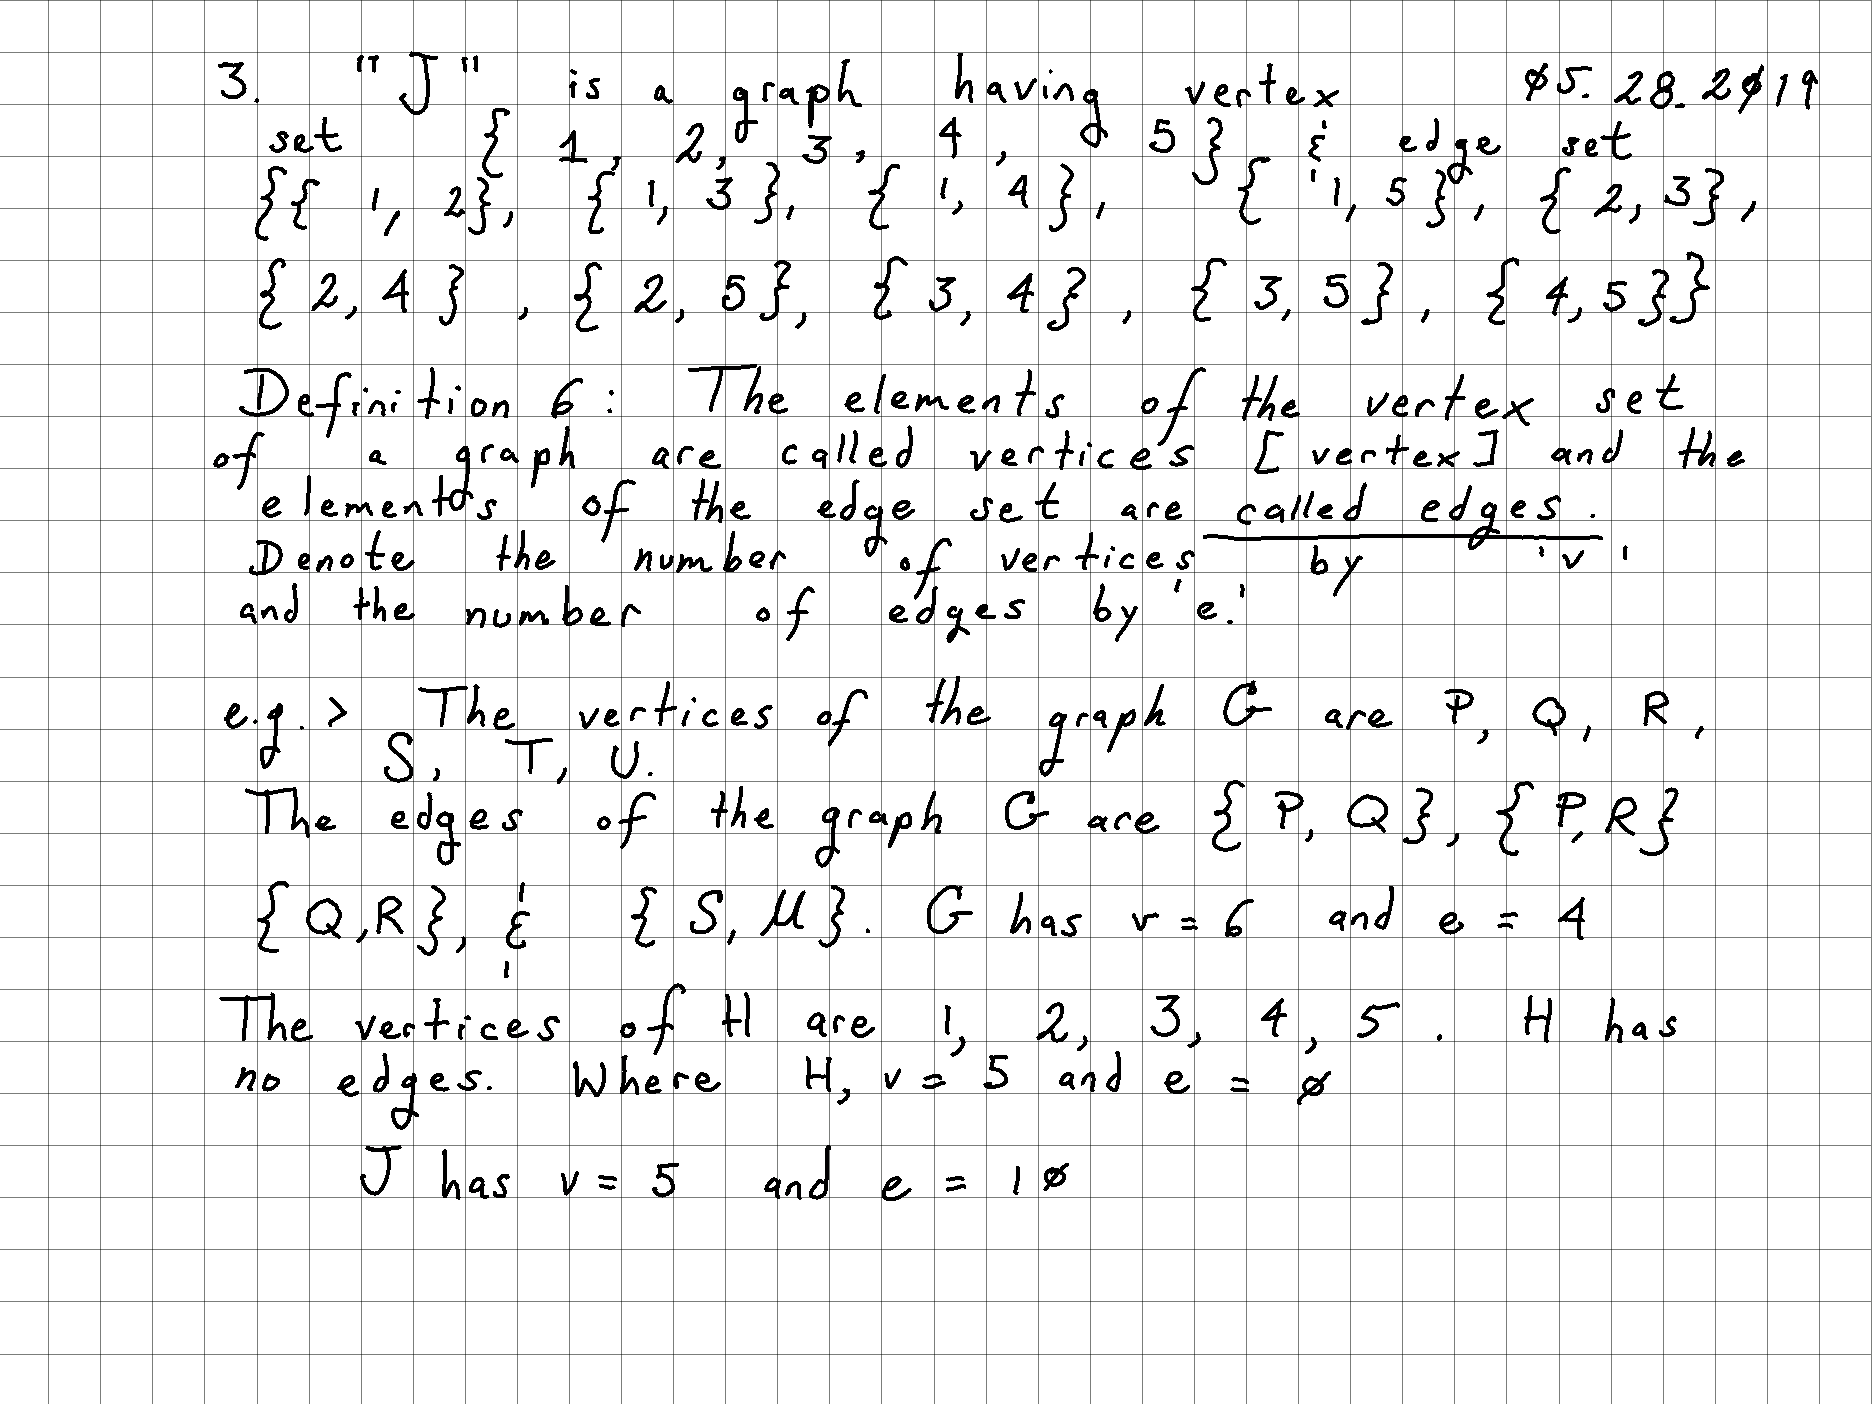 3. "J" is a graph having vertex ø5.28.2ø19
set { 1, 2, 3, 4, 5 } & edge set
{{ 1, 2}, { 1, 3 }, { 1, 4 }, { 1, 5 }, { 2, 3 },
{ 2, 4 } , { 2, 5 }, { 3, 4 } , { 3, 5 } , { 4, 5 }}
Definition 6 : The elements of the vertex set
of a graph are called vertices [ vertex ] and the
elements of the edge set are called edges .
Denote the number of vertices by 'v'
and the number of edges by 'e.'
e.g. > The vertices of the graph G are P, Q, R,
S, T, U.
The edges of the graph G are { P, Q }, { P, R }
{ Q, R }, & { S, U }. G has v = 6 and e = 4
The vertices of H are 1, 2, 3, 4, 5 . H has
no edges. Where H, v = 5 and e = ø
J has v = 5 and e = 1ø